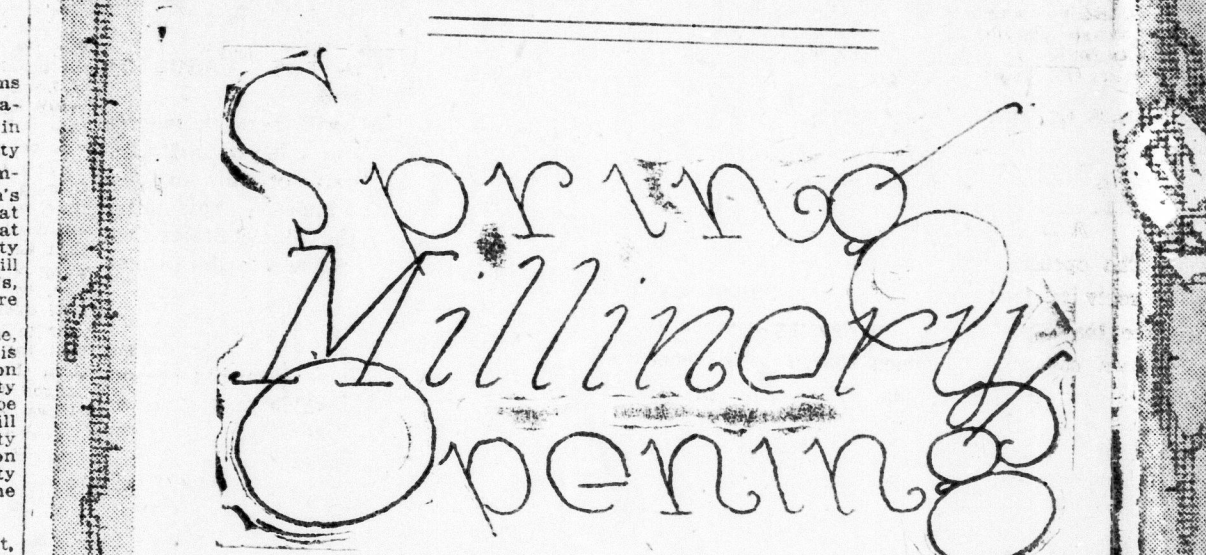 Spring
Millinery
Opening